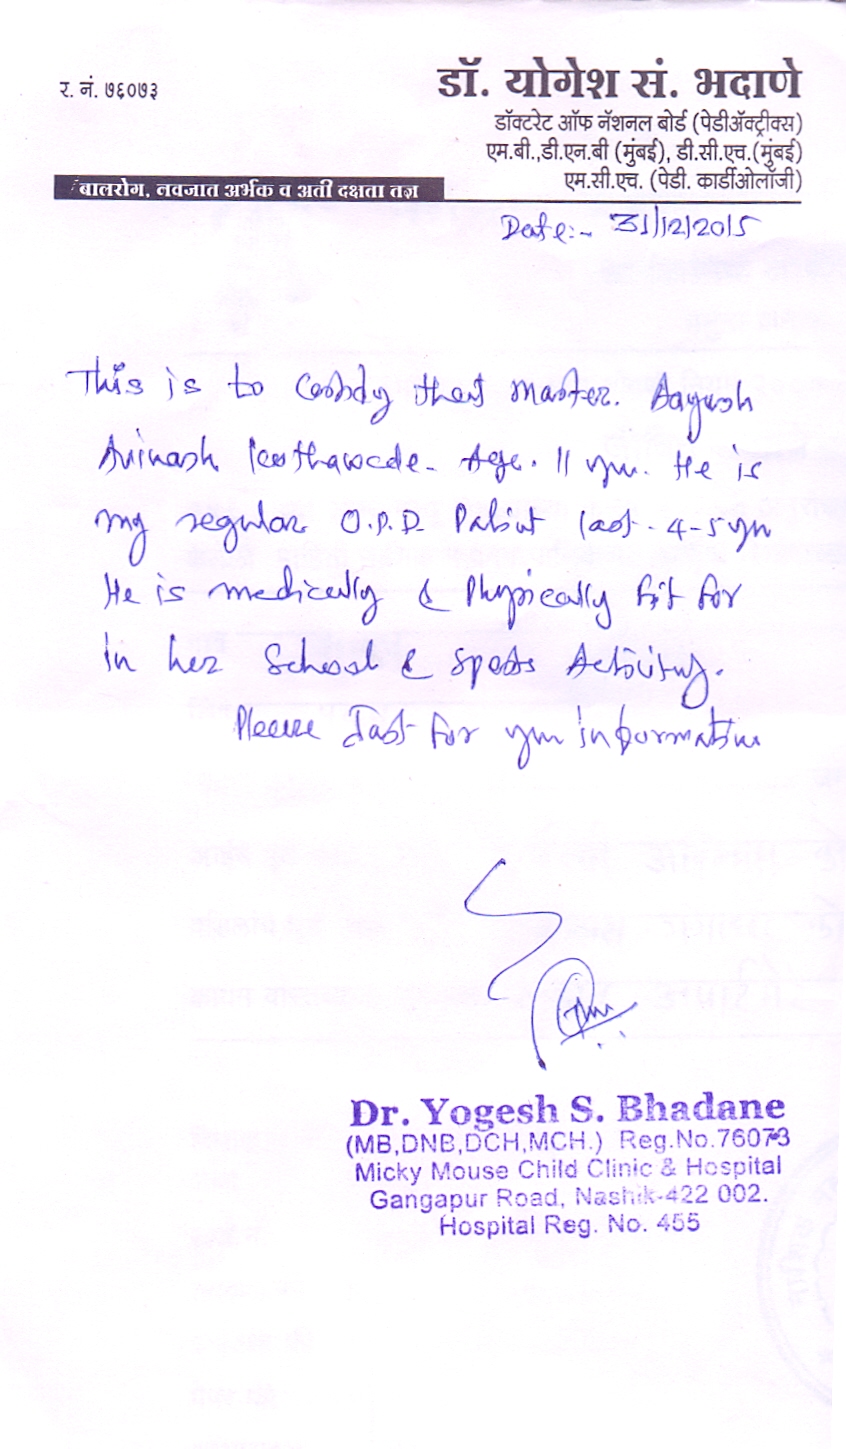 र. नं. ७६०७३
डॉ. योगेश सं. भदाणे
डॉक्टरेट ऑफ नॅशनल बोर्ड (पेडीॲक्ट्रीक्स)
एम.बी.,डी.एन.बी (मुंबई), डी.सी.एच.(मुंबई)
एम.सी.एच. (पेडी. कार्डीओलॉजी)
बालरोग, नवजात अर्भक व अती दक्षता तज्ञ
Date:- 31/12/2015
This is to that master. Aayush
Avinash Age. 11 yrs. He is
my regular O.P.D. Patient last - 4-5 yrs
He is medically & Physically fit for
in her School & Sports Activity.
Please for your information
Dr. Yogesh S. Bhadane
(MB,DNB,DCH,MCH.) Reg.No.76073
Micky Mouse Child Clinic & Hospital
Gangapur Road, Nashik-422 002.
Hospital Reg. No. 455